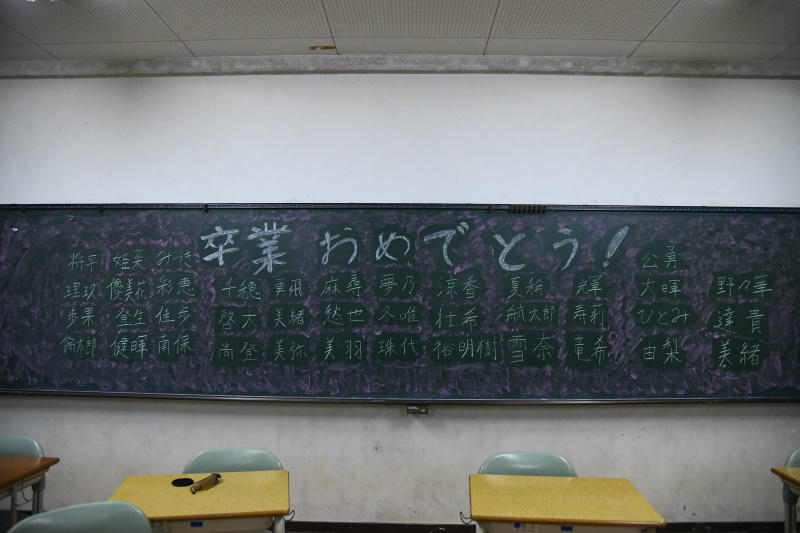 卒業おめでとう!
将平 姫菜 みつき 公勇
理玖 優美花 彩恵 千穂 美飛 麻尋 夢乃 涼香 夏絵 輝 大暉 野々華
歩果 登生 佳歩 啓太 美緒 悠也 冬唯 壮希 航太郎 寿莉 ひとみ 達貴
倫太郎 健暉 南保 尚登 美弥 美羽 珠代 裕明樹 雪奈 竜希 由梨 美緒